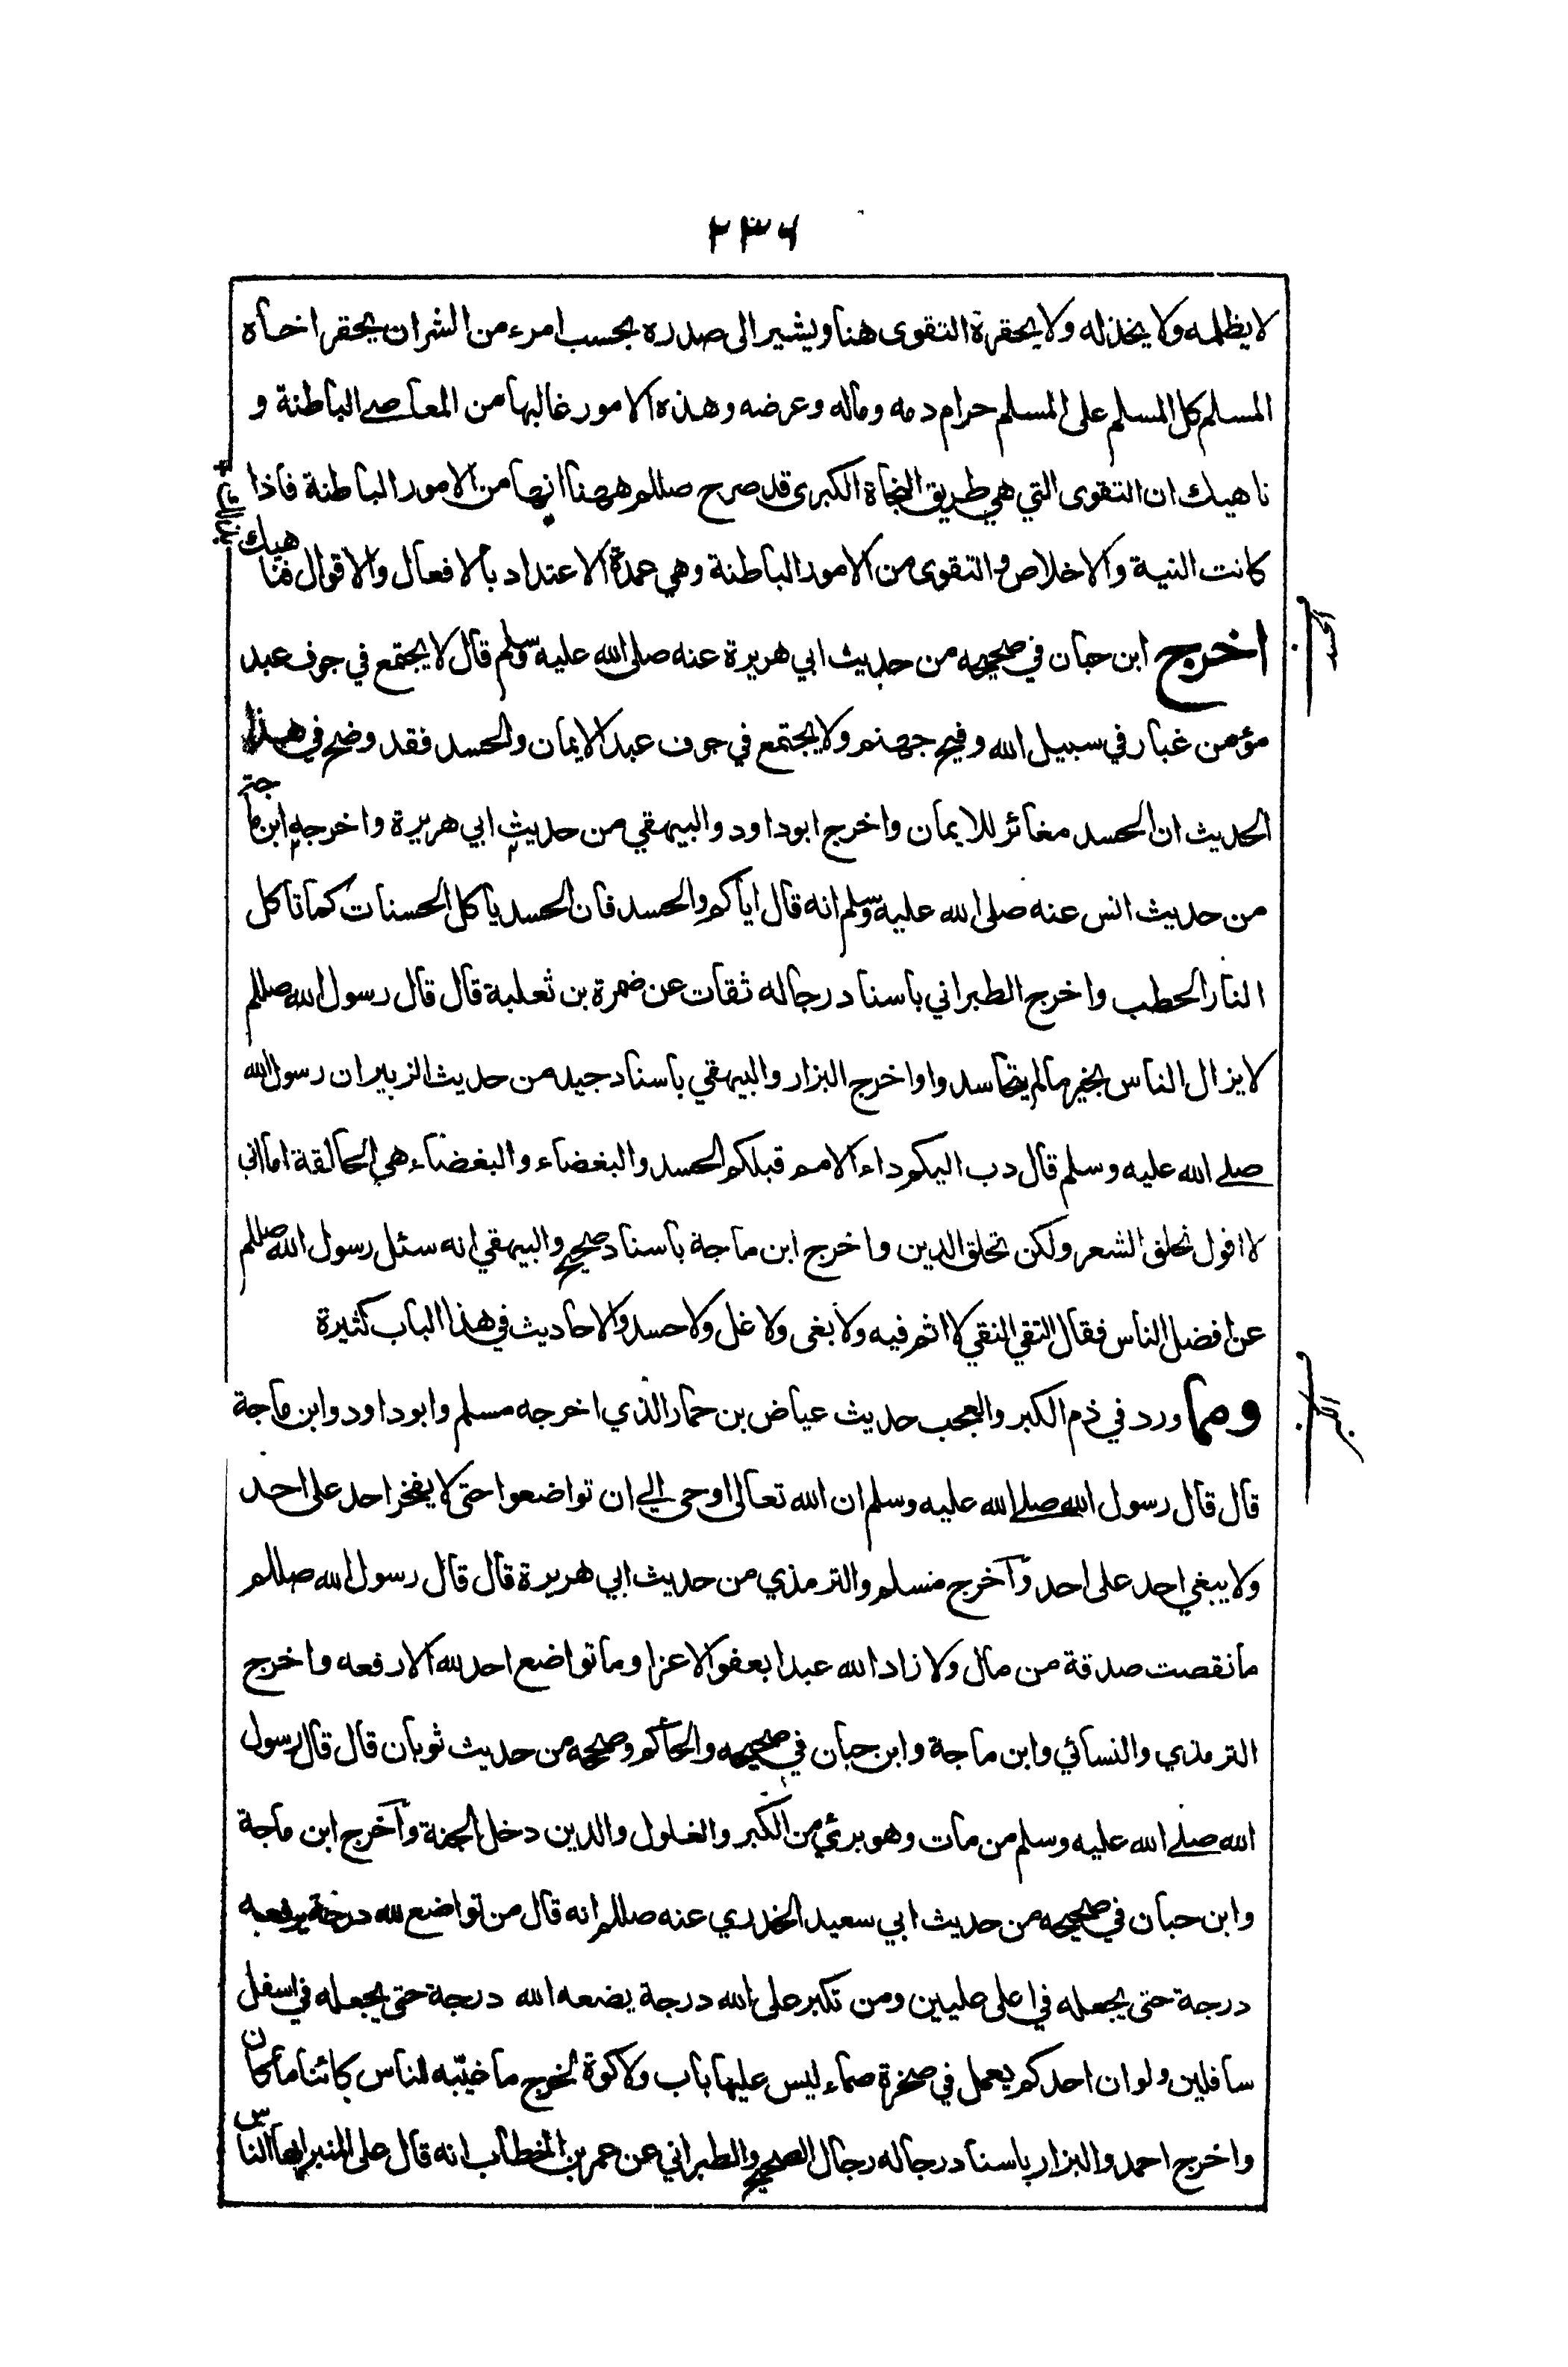 ٢٣٦
لا يظلمه ولا يخذله ولا يحقرة التقوى هنا ويشير الى صدره بحسب امرء من الشر ان يحقر اخاه
المسلم كل المسلم على المسلم حرام دمه وماله وعرضه وهذه الامور غالبها من المعاصے الباطنة و
ناهيك ان التقوى التي هي طريق النجاة الكبرى قد صرح صللم ههنا انها من الامور الباطنة فاذا
كانت النية والاخلاص والتقوى من الامور الباطنة وهي عمدة الاعتداد بالافعال والاقوال فناهيك بذالك
الحسد
اخرج ابن حبان في صحيحه من حديث ابي هريرة عنه صلى الله عليه وسلم قال لا يجتمع في جوف عبد
مؤمن غبار في سبيل الله وفيح جهنم ولا يجتمع في جوف عبد الايمان والحسد فقد وضح في هذا
الحديث ان الحسد مغائر للايمان واخرج ابو داود والبيهقي من حديث ابي هريرة واخرجه ابن ماجة
من حديث انس عنه صلى الله عليه وسلم انه قال اياكم والحسد فان الحسد ياكل الحسنات كما تاكل
النار الحطب واخرج الطبراني باسناد رجاله ثقات عن ضمرة بن ثعلبة قال قال رسول الله صللم
لا يزال الناس بخير مالم يتحاسدوا واخرج البزار والبيهقي باسناد جيد من حديث الزبير ان رسول الله
صلے الله عليه وسلم قال دب اليكم داء الامم قبلكم الحسد والبغضاء والبغضاء هي الحالقة اما اني
لا اقول تحلق الشعر ولكن تحلق الدين واخرج ابن ماجة باسناد صحيح والبيهقي انه سئل رسول الله صللم
عن افضل الناس فقال التقي النقي لا اثم فيه ولا بغى ولا غل ولا حسد والاحاديث في هذا الباب كثيرة
الكبر
وما ورد في ذم الكبر والعجب حديث عياض بن حمار الذي اخرجه مسلم وابو داود وابن ماجة
قال قال رسول الله صلے الله عليه وسلم ان الله تعالى اوحى الي ان تواضعوا حتى لا يفخر احد على احد
ولا يبغي احد على احد وآخرج مسلم والترمذي من حديث ابي هريرة قال قال رسول الله صللم
ما نقصت صدقة من مال ولا زاد الله عبدا بعفو الا عزا وما تواضع احد لله الا رفعه واخرج
الترمذي والنسائي وابن ماجة وابن حبان في صحيحه والحاكم وصححه من حديث ثوبان قال قال رسول
الله صلے الله عليه وسلم من مات وهو برئ من الكبر والغلول والدين دخل الجنة وآخرج ابن ماجة
وابن حبان في صحيحه من حديث ابي سعيد الخدري عنه صللم انه قال من تواضع لله درجة يرفعه
درجة حتى يجعله في اعلى عليين ومن تكبر على الله درجة يضعه الله درجة حتى يجعله في اسفل
سافلين ولو ان احدكم يعمل في صخرة صماء ليس عليها باب ولا كوة لخرج ما خيّبه للناس كائنا ما كان
واخرج احمد والبزار باسناد رجاله رجال الصحيح والطبراني عن عمر بن الخطاب انه قال على المنبر ايها الناس